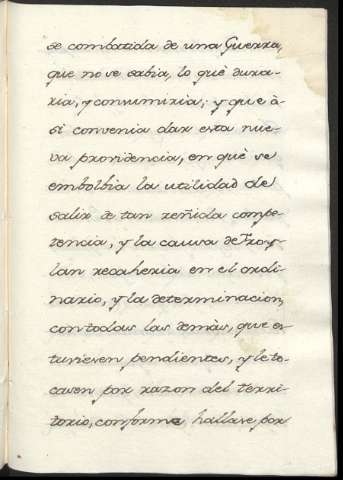 se combatida de una Guerra,
que no se sabia, lo què dura-
ria, y consumiria; y que à-
si convenia dar esta nue-
va providencia, en què se
embolbia la utilidad de
salir de tan reñida compe-
tencia, y la causa de Froy-
lan recaheria en el ordi-
nario, y la determinacion,
con todas las demàs, que es
tuviesen pendientes, y le to-
casen por razon del terri-
torio, conforme hallase por